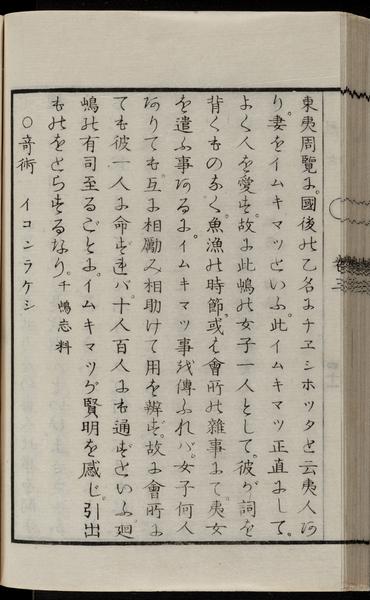 東夷周覽に。國後の乙名にチヱシホツタと云夷人あ
り。妻をイムキマツといふ。此イムキマツ正直にして。
よく人を愛す。故に此嶋の女子一人として。彼が詞を
背くものなく。魚漁の時節。或は會所の雜事にて。夷女
を遣ふ事あるに。イムキマツ事を傳ふれバ。女子何人
ありても。互に相勵み相助けて用を辨ず。故に會所に
ても彼一人に命ずれバ。十人百人にも通ずといふ。廻
嶋の有司至るごとに。イムキマツが賢明を感じ。引出
ものをとらするなり。千嶋志料
〇竒術　イコンラケシ